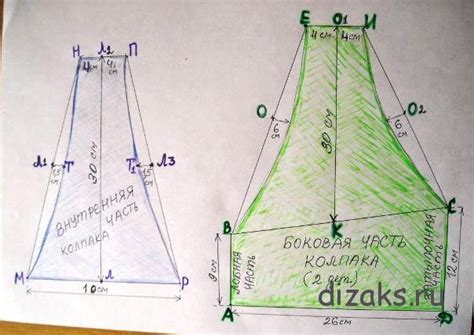 Н Л2 П
4см 4см
Л1 Т Т1 Л3
1,5 см 1,5 см
30 см
ВНУТРЕННЯЯ
ЧАСТЬ
КОЛПАКА
М Л Р
10 см
Е О1 И
4 см 4 см
О О2
6 см 6 см
30 см
В К С
БОКОВАЯ ЧАСТЬ
КОЛПАКА
(2 дет.)
ЛОБНАЯ
ЧАСТЬ
ЗАТЫЛОЧНАЯ
ЧАСТЬ
9 см
12 см
А
26 см
dizaks.ru